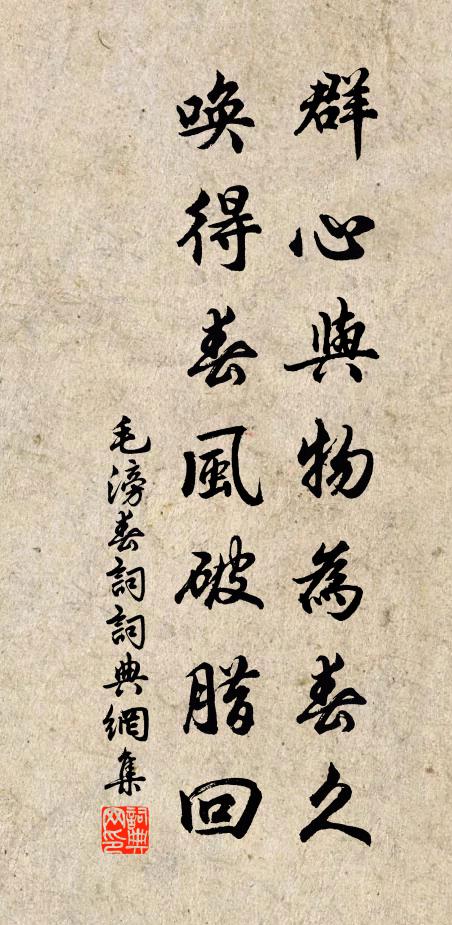 群心與物為春久
喚得春風破腊回
毛滂春詞詞典網集
詞典網印